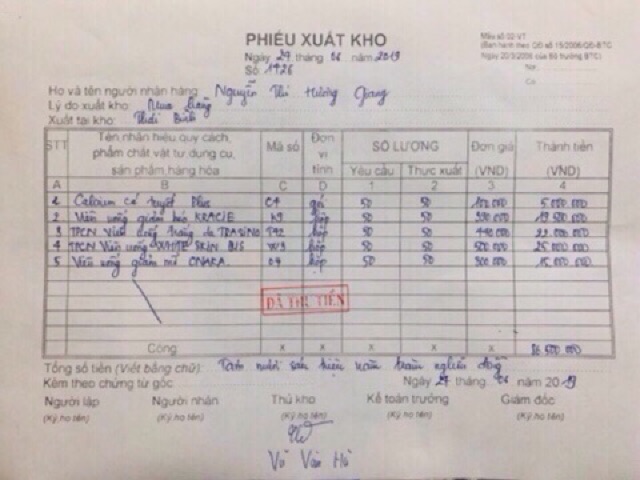 PHIẾU XUẤT KHO
Mẫu số 02-VT
(Ban hành theo QĐ số 15/2006/QĐ-BTC
Ngày 20/3/2006 của Bộ trưởng BTC)
Ngày 27 tháng 06 năm 2019
Số: 1926
Nợ:
Có
Họ và tên người nhận hàng: Nguyễn Thị Hương Giang
Lý do xuất kho: Mua hàng
Xuất tại kho: Thái Bình
STT Tên nhãn hiệu quy cách, phẩm chất vật tư dụng cụ, sản phẩm, hàng hóa Mã số Đơn vị tính SỐ LƯỢNG Đơn giá (VND) Thành tiền (VND)
Yêu cầu Thực xuất
A B C D 1 2 3 4
1 Calcium cá tuyết Plus C4 gói 50 50 100 000 5 000 000
2 Viên uống giảm béo KRACIE K9 hộp 50 50 390 000 19 500 000
3 TPCN Viên uống trắng da TRASINO T92 hộp 50 50 440 000 22 000 000
4 TPCN Viên uống WHITE SKIN BIS W3 hộp 50 50 500 000 25 000 000
5 Viên uống giảm mỡ ONAKA 04 hộp 50 50 300 000 15 000 000
ĐÃ THU TIỀN
Cộng x x x x 86 500 000
Tổng số tiền (Viết bằng chữ): Tám mươi sáu triệu năm trăm nghìn đồng
Kèm theo chứng từ gốc
Ngày 27 tháng 06 năm 2019
Người lập Người nhận Thủ kho Kế toán trưởng Giám đốc
(Ký, họ tên) (Ký, họ tên) (Ký, họ tên) (Ký, họ tên) (Ký, họ tên)
Võ Văn Hà